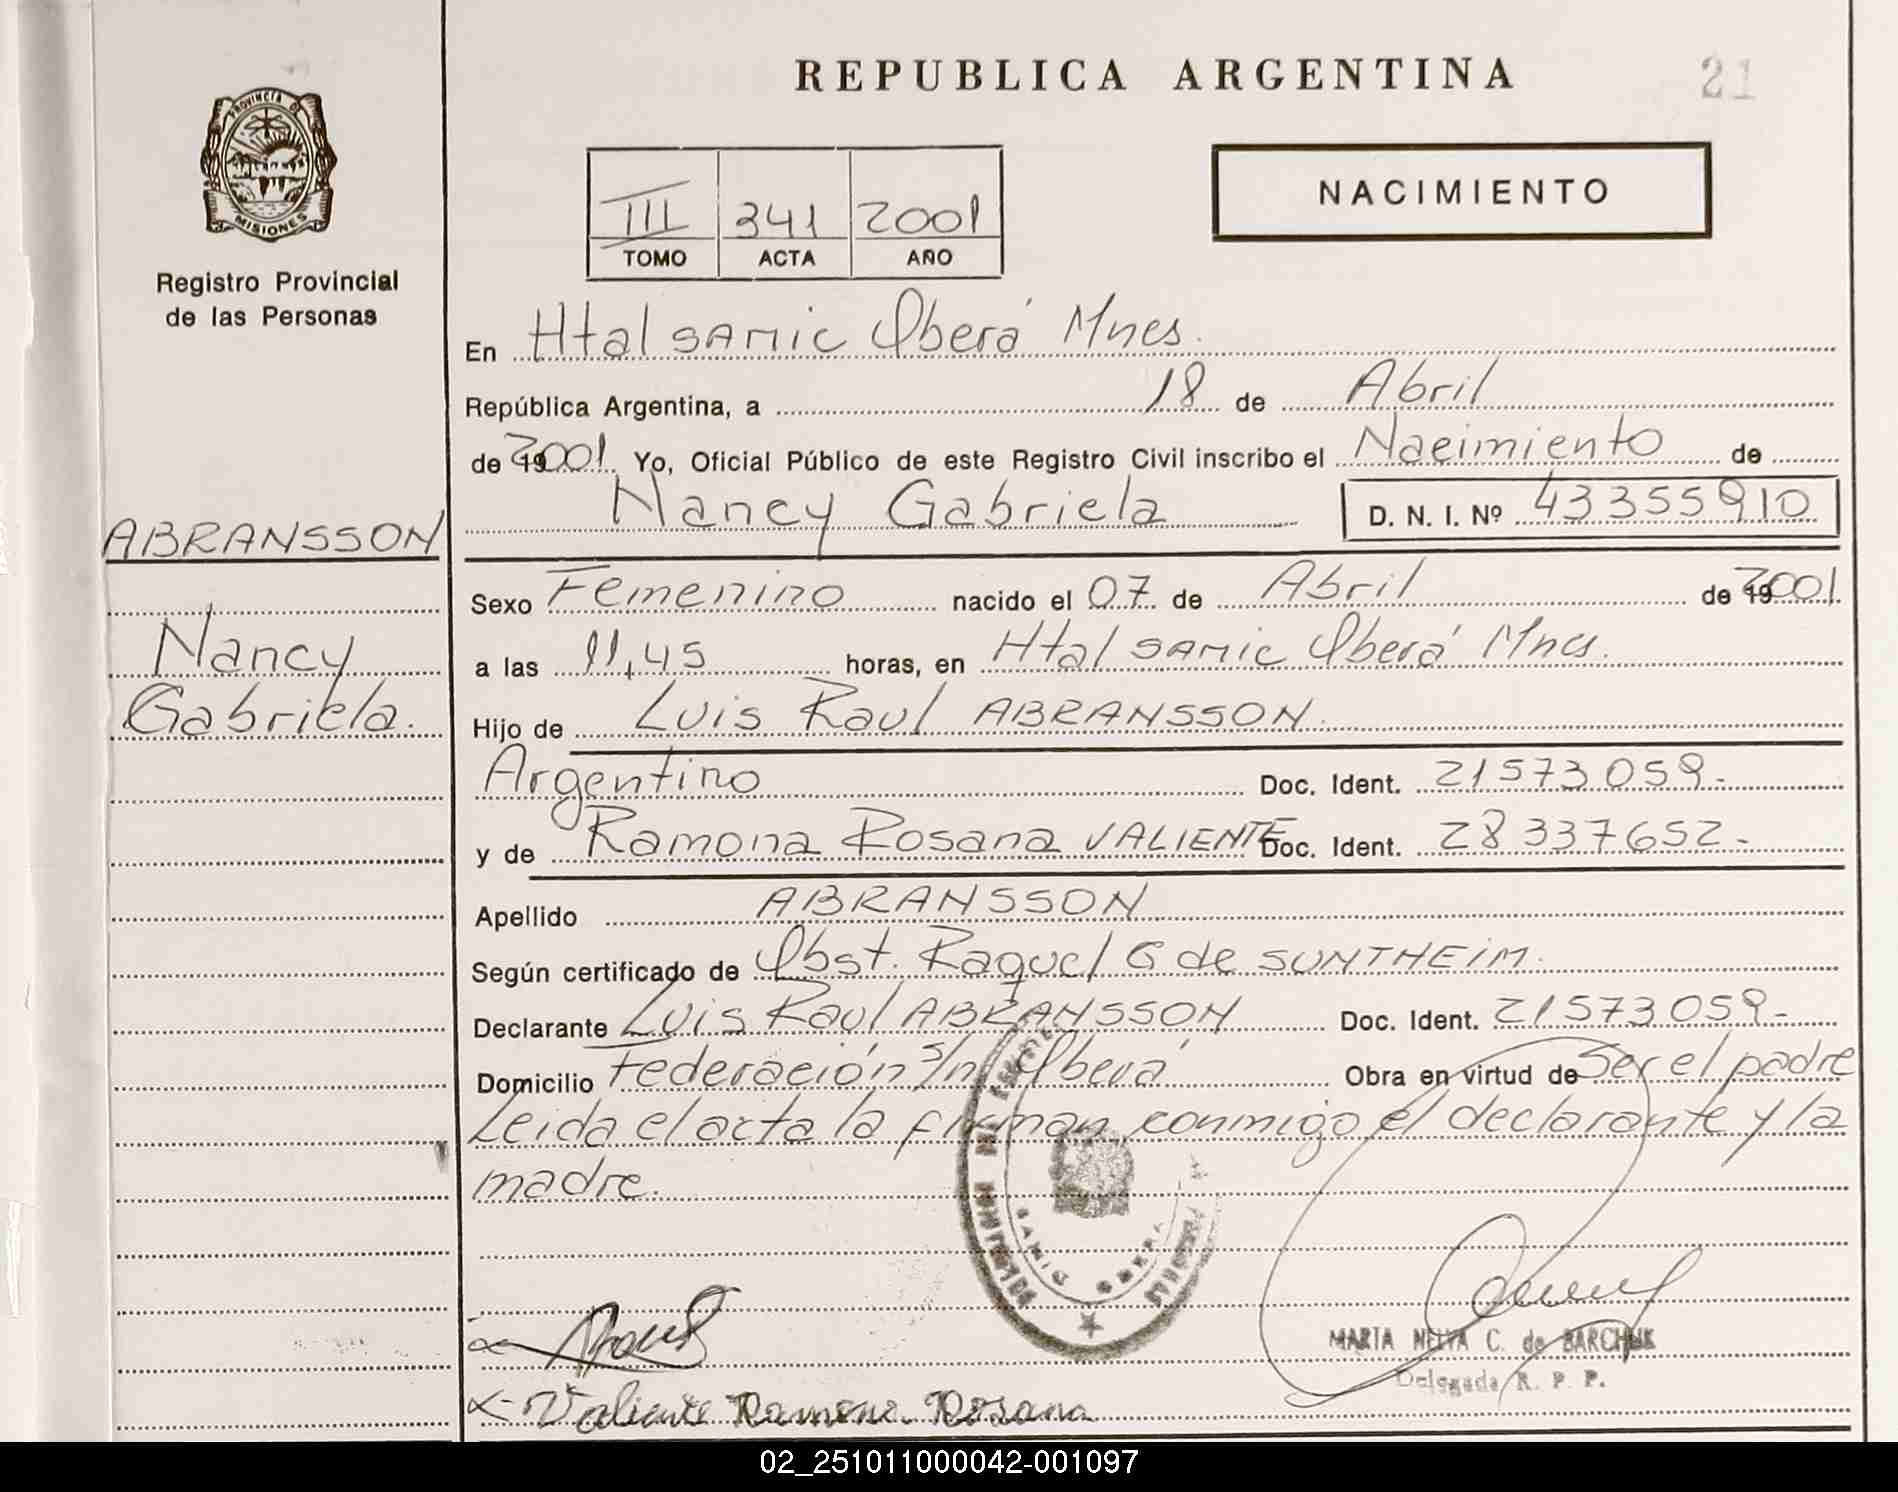 REPUBLICA ARGENTINA
21
PROVINCIA DE
MISIONES
Registro Provincial
de las Personas
NACIMIENTO
III 341 2001
TOMO ACTA AÑO
En Htal SAMIC Oberá Mnes.
República Argentina, a 18 de Abril
de 19 2001 Yo, Oficial Público de este Registro Civil inscribo el Nacimiento de
Nancy Gabriela D. N. I. Nº 43355910
ABRANSSON
Nancy
Gabriela.
Sexo Femenino nacido el 07 de Abril de 19 2001.
a las 11,45 horas, en Htal SAMIC Oberá Mnes.
Hijo de Luis Raul ABRANSSON.
Argentino Doc. Ident. 21573059.-
y de Ramona Rosana VALIENTE Doc. Ident. 28337652.-
Apellido ABRANSSON
Según certificado de Obst. Raquel G de SUNTHEIM.
Declarante Luis Raúl ABRANSSON Doc. Ident. 21573059.-
Domicilio Federación s/n Oberá Obra en virtud de Ser el padre
Leida el acta la firman conmigo el declarante y la
madre.
SAMIC
MARTA NELVA C. de BARCHUK
Delegada R. P. P.
Valiente Ramona Rosana
02_251011000042-001097